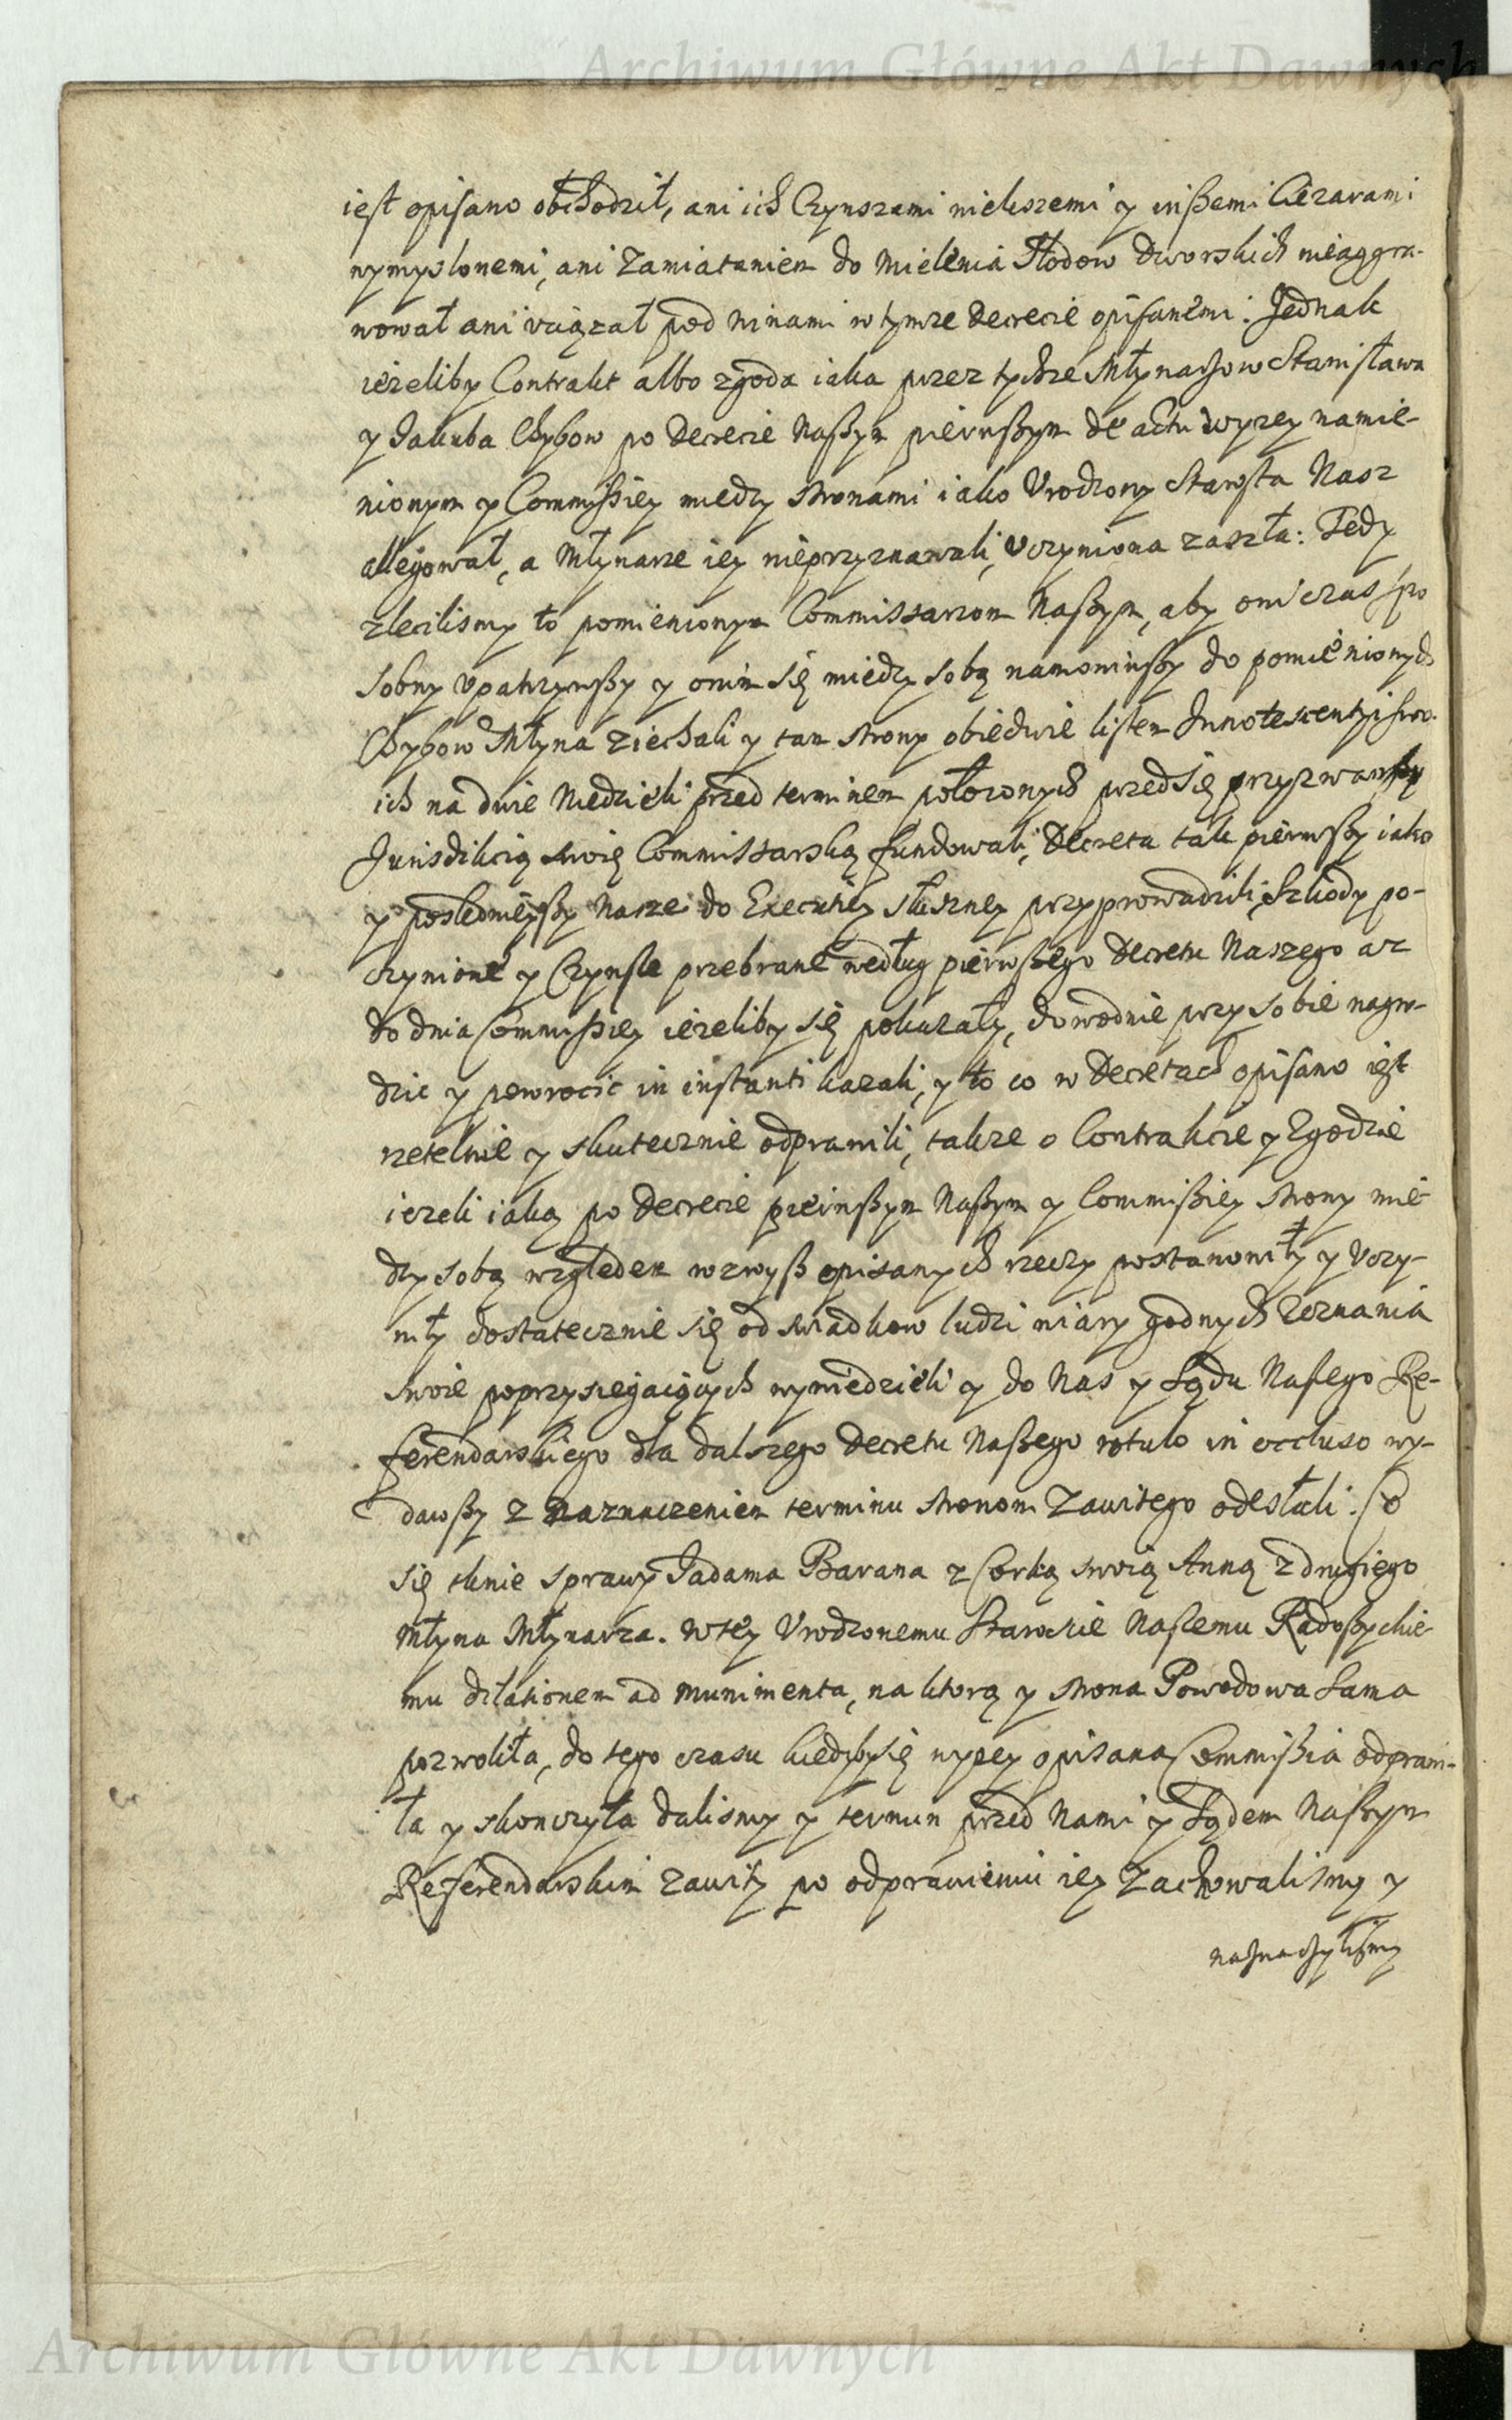 Archiwum Główne Akt Dawnych
iest opisano obchodził, ani ich Czynszami niekszemi y inßemi Ciezarami
wymyslonemi, ani Zamiataniem do mielenia Słodow Dworskich nieaggra-
wował ani vciązał pod winami w tymze Decrecie opisanemi: Jednak
iezeliby Contrakt albo zgoda iaka przez tychze Młynarzow Stanisława
y Jakuba Chybow po Decrecie Naßym pierwßym de actu wyzey namie-
nionym y Commißiey miedzy stronami iako Vrodzony Starosta Nasz
allegował, a Młynarze iey nieprzyznawali, Vczyniona zaszła: Tedy
zlecilismy to pomienionym Commissarzom Naßym, aby oni czas spo
sobny vpatrzywßy y onim się miedzy sobą namowiwßy do pomienionych
Chybow Młyna ziechali y tam strony obiedwie listem Innotescentyi swo-
ich na dwie Niedzieli przed terminem połozonych przed się przyzwawßy
Jurisdikcią swoię Commissarską fundowali, Decreta tak pierwßy iako
y poslednieyßy Nasze do Executiey słuszney przyprowadzili, Szkody po-
czynione y Czynsze przebrane według pierwßego Decretu Naszego az
do dnia Commißiey iezeliby się pokazały, dowodnie przy sobie nagro-
dzic y powrocic in instanti kazali, y to co w Decretach opisano iest
rzetelnie y skutecznie odprawili, takze o Contrakcie y Zgodzie
iezeli iaką po Decrecie pierwßym Naßym y Commißiey strony mie-
dzy sobą względem wzwyß opisanych rzeczy postanowiły y Vczy-
niły dostatecznie się od swiadkow ludzi wiary godnych Zeznania
swoie poprzysięgaiących wywiedzieli y do Nas y Sądu Naszego Re-
ferendarskiego dla dalszego Decretu Naßego rotulo in occluso wy-
dawßy z Naznaczeniem terminu stronom Zawitego odesłali. Co
się tknie sprawy Jadama Barana z Corką swoią Anną z drugiego
Młyna Młynarza. w tey Vrodzonemu Staroscie Naszemu Radoßyckie
mu dilationem ad munimenta, na ktorą y strona Powodowa sama
pozwoliła, do tego czasu kiedyby się wyzey opisana Commißia odprawi-
ła y skonczyła dalismy y termin przed Nami y Sądem Naßym
Referendarskim zawity po odprawieniu iey Zachowalismy y
naznaczylismy
Archiwum Główne Akt Dawnych